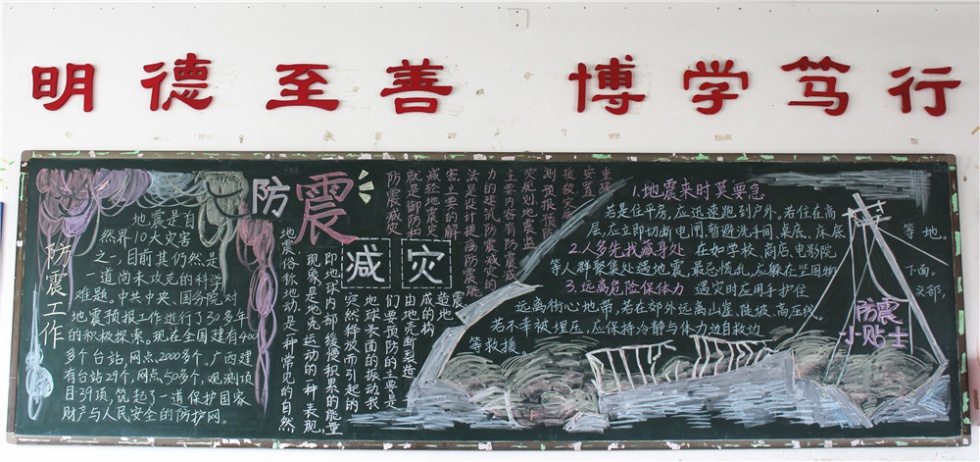 明德至善 博学笃行
防震减灾
防震工作
地震是自
然界10大灾害
之一,目前其仍然是
一道尚未攻克的科学
难题。中共中央、国务院对
地震预报工作进行了30多年
的积极探索。现在全国建有400
多个台站,网点,2000多个,广西建
有台站29个,网点,50多个,观测项
目39项,筑起了一道保护国家
财产与人民安全的防护网。
地震俗称地动,是一种常见的自然
现象,是地壳运动的一种表现,
即地球内部缓慢积累的能量
突然释放而引起的
地球表面的振动我
们要预防的主要是
由地壳断裂造
成的构
造地
震
防震减灾
就是御防和
减轻地震灾
害,主要的解
法是设计提高防震能
力的建筑,防震减灾的
主要内容有防震减
灾规划地震监
测预报预防
救援救灾
安置
1.地震来时莫要急
若是住平房,应迅速跑到户外。若住在高
层,应立即切断电闸,暂避洗手间、桌底、床底等地。
2.人多先找藏身处 在如学校、商店、电影院
等人群聚集处遇地震,最忌慌乱,应躲在坚固物下面。
3.远离危险保体力 遇灾时应用手护住头部,
远离街心地带,若在郊外远离山崖、陡坡、高压线。
若不幸被埋压,应保持冷静与体力,自救边
等救援。
防震
小贴士